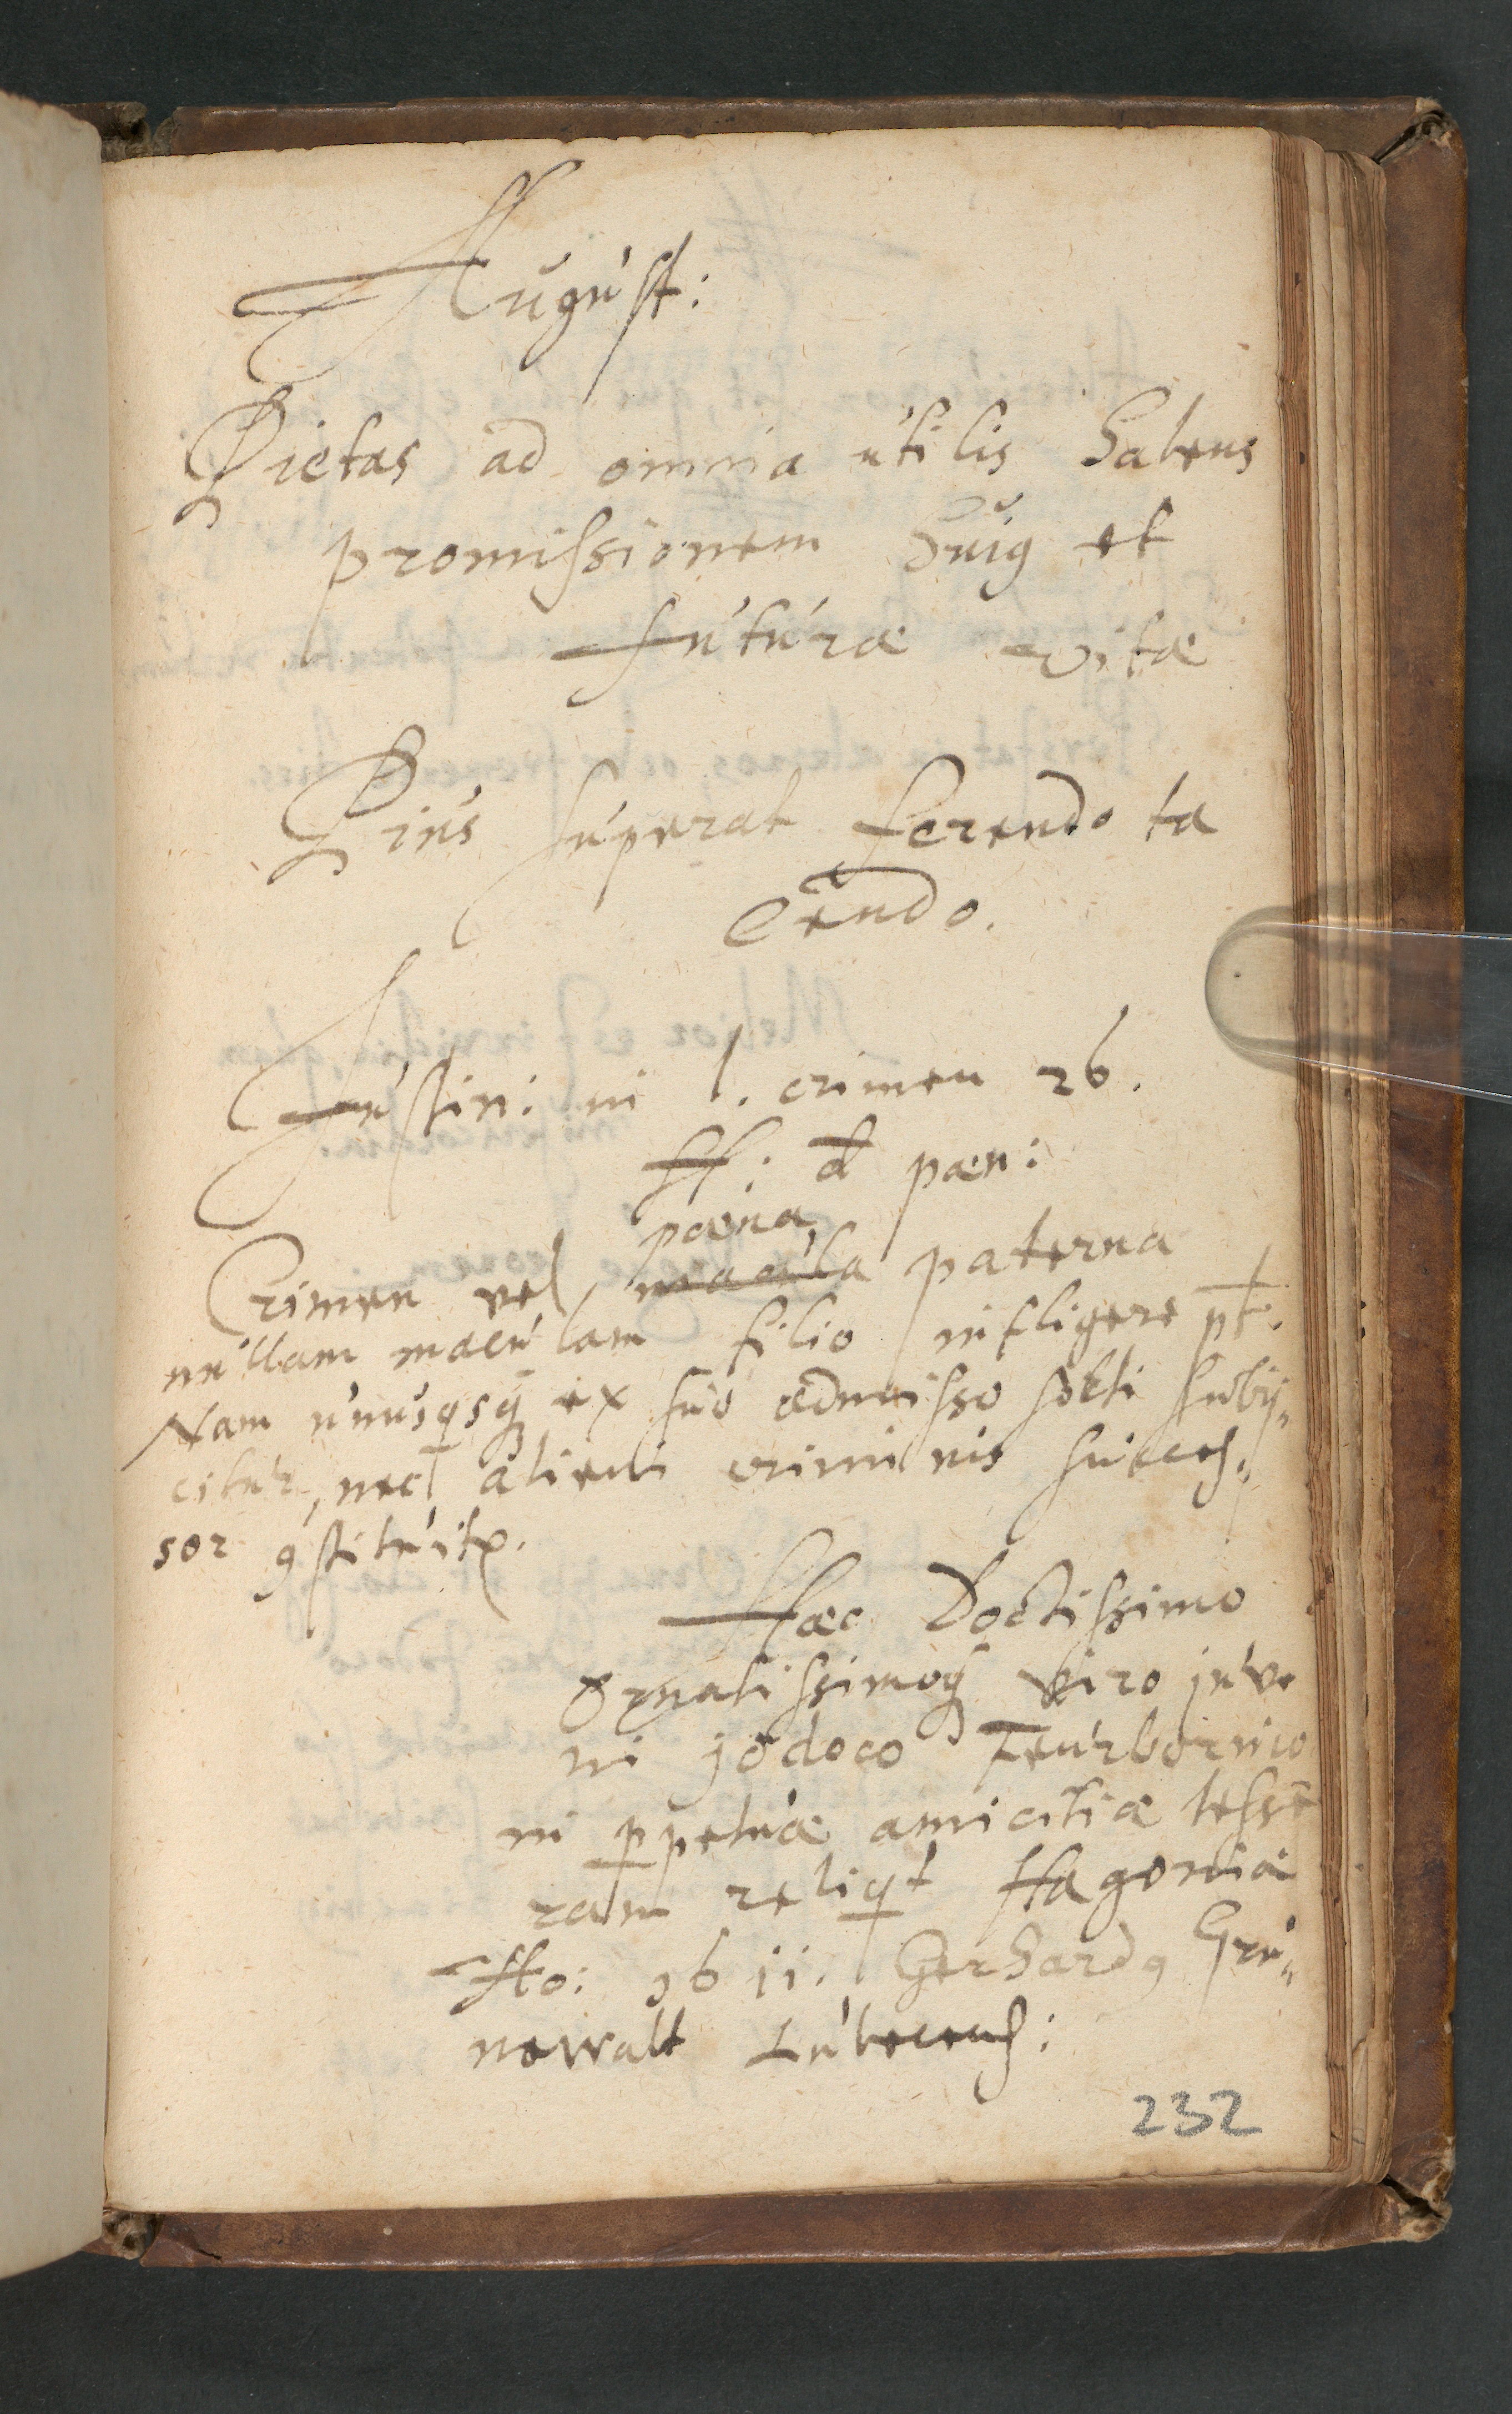 August:
Pietas ad omnia utilis habens
promissionem huiꝰ et
futuræ vitæ
Pius superat ferendo ta
cendo.
Justin: in l. crimen 26.
ff: d pœn:
pœna
Crimen vel macula paterna
nullam maculam filio infligere pt.
Nam unusqsq ex suo admisso sorti subij„
citur, nec alieni criminis succes„
sor ꝯstituitr.
Hæc Doctissimo
Ornatissimoq viro juve
ni jodoco Feurbornio
in ppetuæ amicitiæ tesse
ram reliqt Hagoniæ
Ho: 1611. Gerhardꝰ Gru„
newalt Lubecens:
232